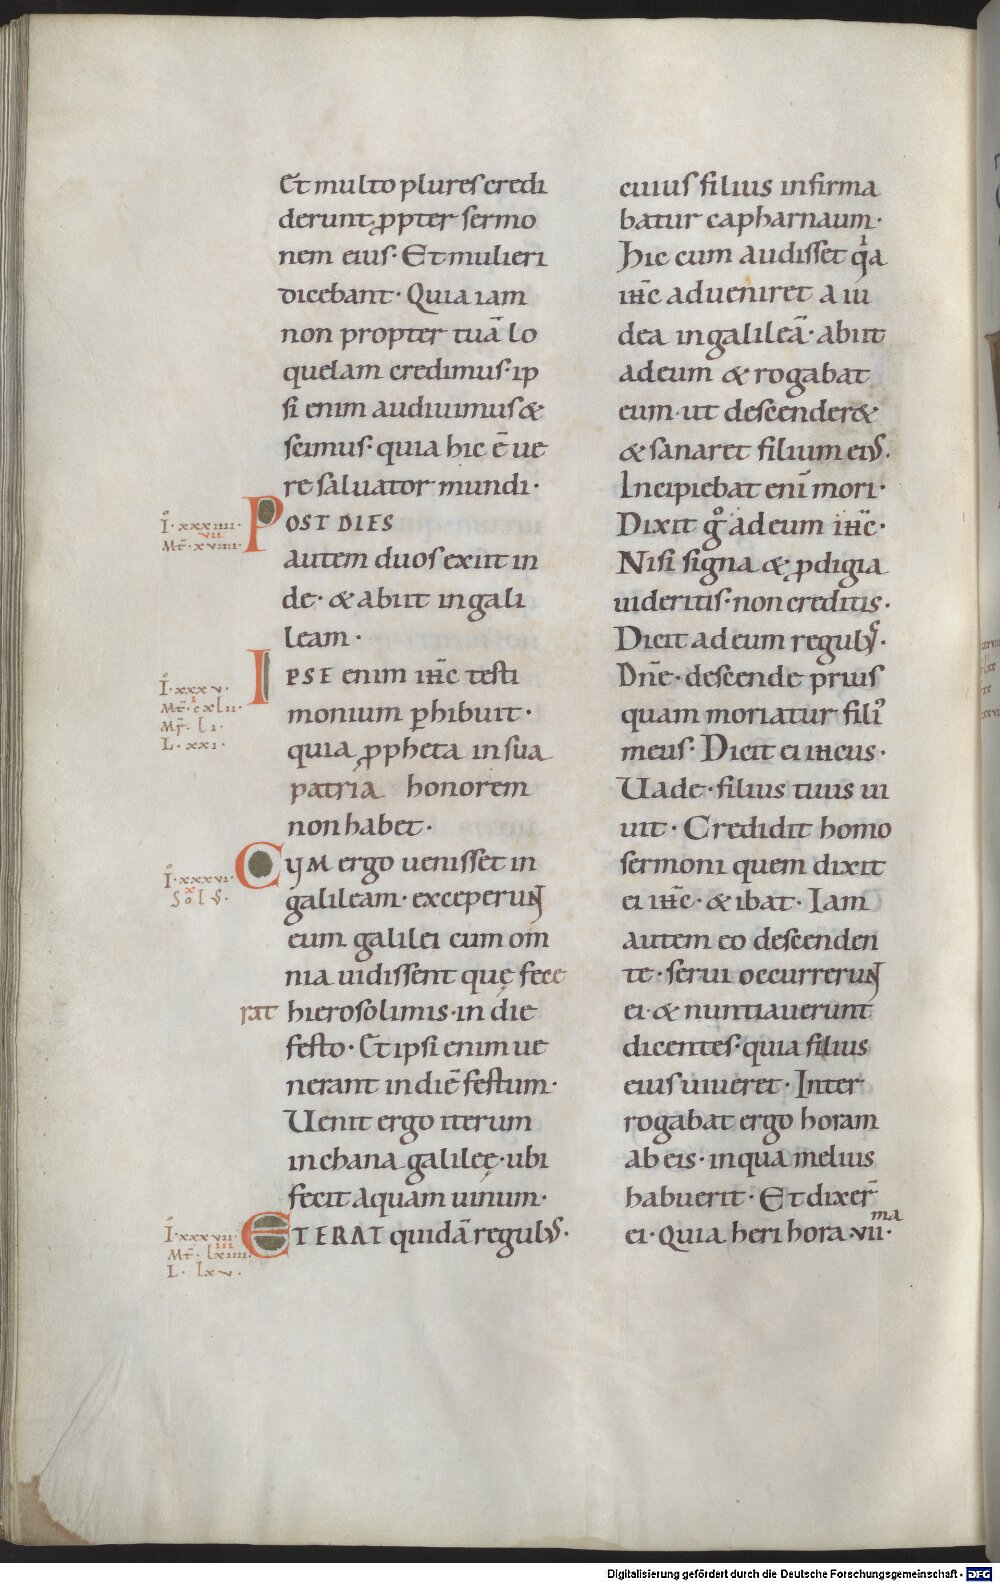 Et multo plures credi
derunt ꝓpter sermo
nem eius· Et mulieri
dicebant· Quia iam
non propter tuā lo
quelam credimus· ip
si enim audiuimus &
scimus· quia hic ē ue
re saluator mundi·
POST DIES
autem duos exiit in
de· & abiit in gali
leam·
IPSE enim ih̄c testi
monium ꝑhibuit·
quia ꝓpheta in sua
patria honorem
non habet·
CUM ergo uenisset in
galileam· exceperunt
eum galilei cum om̄
nia uidissent quę fece
rat hierosolimis· in die
festo· Et ipsi enim ue
nerant in diē festum·
Uenit ergo iterum
in chana galileę· ubi
fecit aquam uinum·
ET ERAT quidā regulus·
I· xxxiiii·
vii
Mt̄· xviiii·
I· xxxv·
i
Mt̄· cxlii·
Mr̄· li·
L· xxi·
I· xxxvi·
x
Sol s·
I· xxxvii·
iii
Mt̄· lxiiii·
L· lxv·
cuius filius infirma
batur capharnaum·
Hic cum audisset qia
ih̄c adueniret a iu
dea in galileā· abiit
ad eum & rogabat
eum· ut descender&
& sanaret filium eius·
Incipiebat eni͞ mori·
Dixit gͦ ad eum ih̄c·
Nisi signa & ꝓdigia
uideritis· non creditis·
Dicit ad eum regulus·
Dn̄e· descende prius
quam moriatur filius
meus· Dicit ei ih̄cus·
Uade· filius tuus ui
uit· Credidit homo
sermoni quem dixit
ei ih̄c· & ibat· Iam
autem eo descenden
te· serui occurrerunt
ei· & nuntiauerunt
dicentes· quia filius
eius uiueret· Inter
rogabat ergo horam
ab eis· in qua melius
habuerit· Et dixer̄
ei· Quia heri hora ·vii·ma
Digitalisierung gefördert durch die Deutsche Forschungsgemeinschaft - DFG